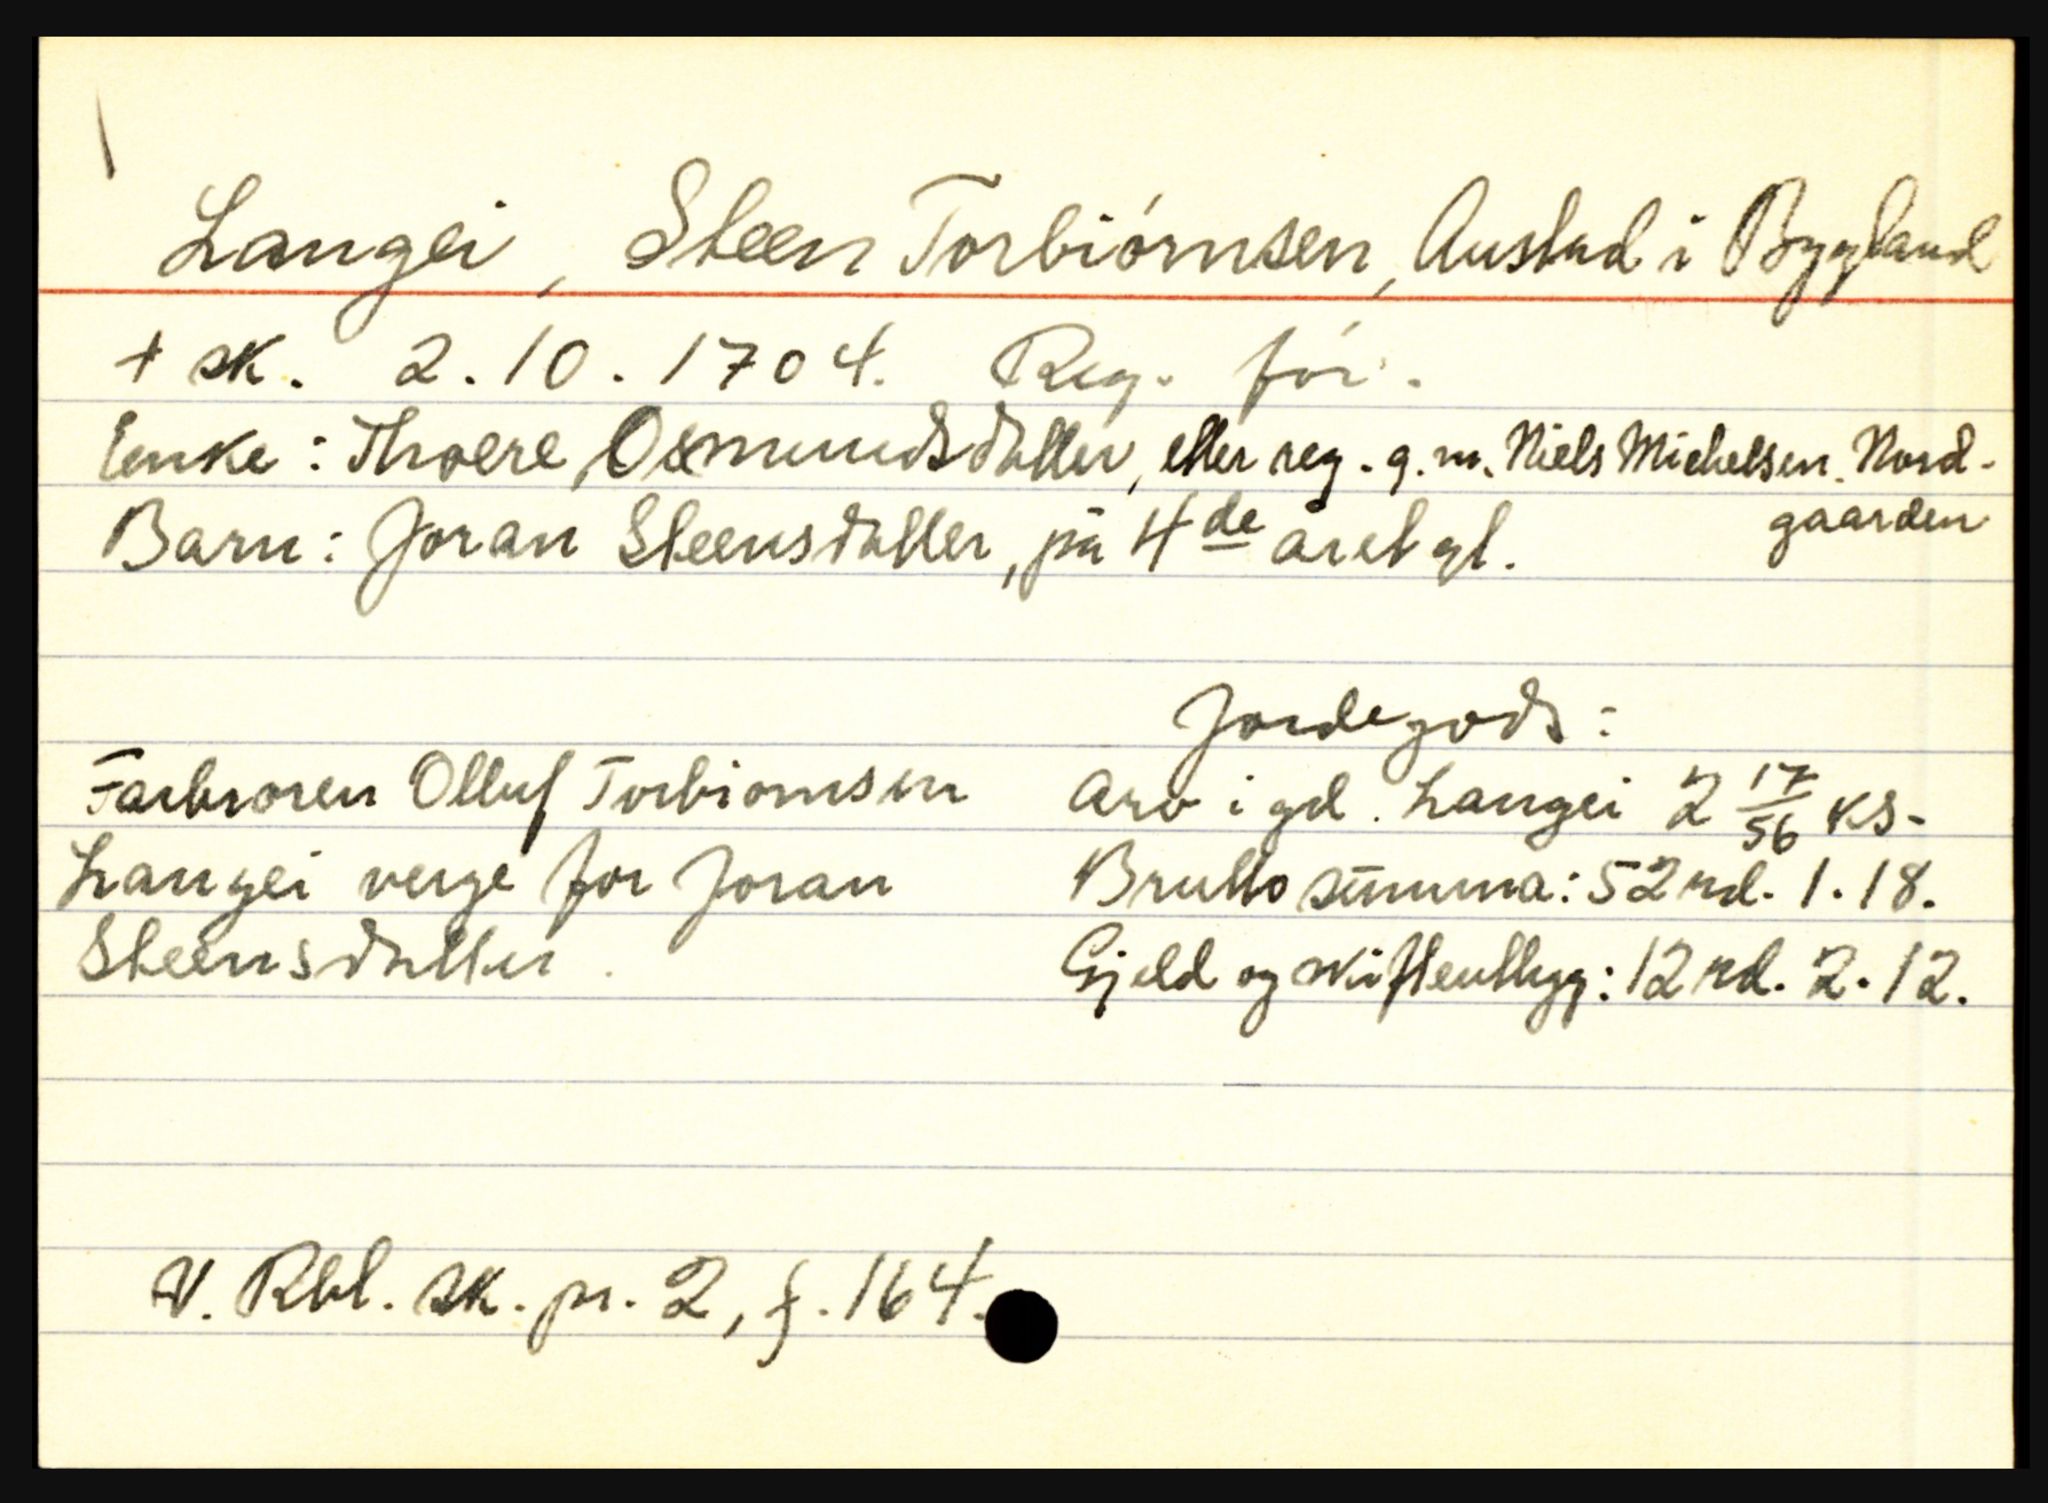 Langei, Steen Torbiórnsen, Austad i Bygland
+ sk. 2.10.1704. Reg. før.
Enke: Thoere Osmundsdatter, etter reg. g.m. Niels Michelsen Nord-
gaarden
Barn: Joran Steensdatter, på 4de året gl.
Jordegods:
Farbroren Olluf Torbiornsen
Langei verge for Joran
Steensdatter.
Arv i gd. Langei 2 17/56 ks.
Brutto summa: 52 rd. 1.18.
Gjeld og skifteutlegg: 12 rd. 2.12.
V. Rbl. sk. pr. 2, f. 164.